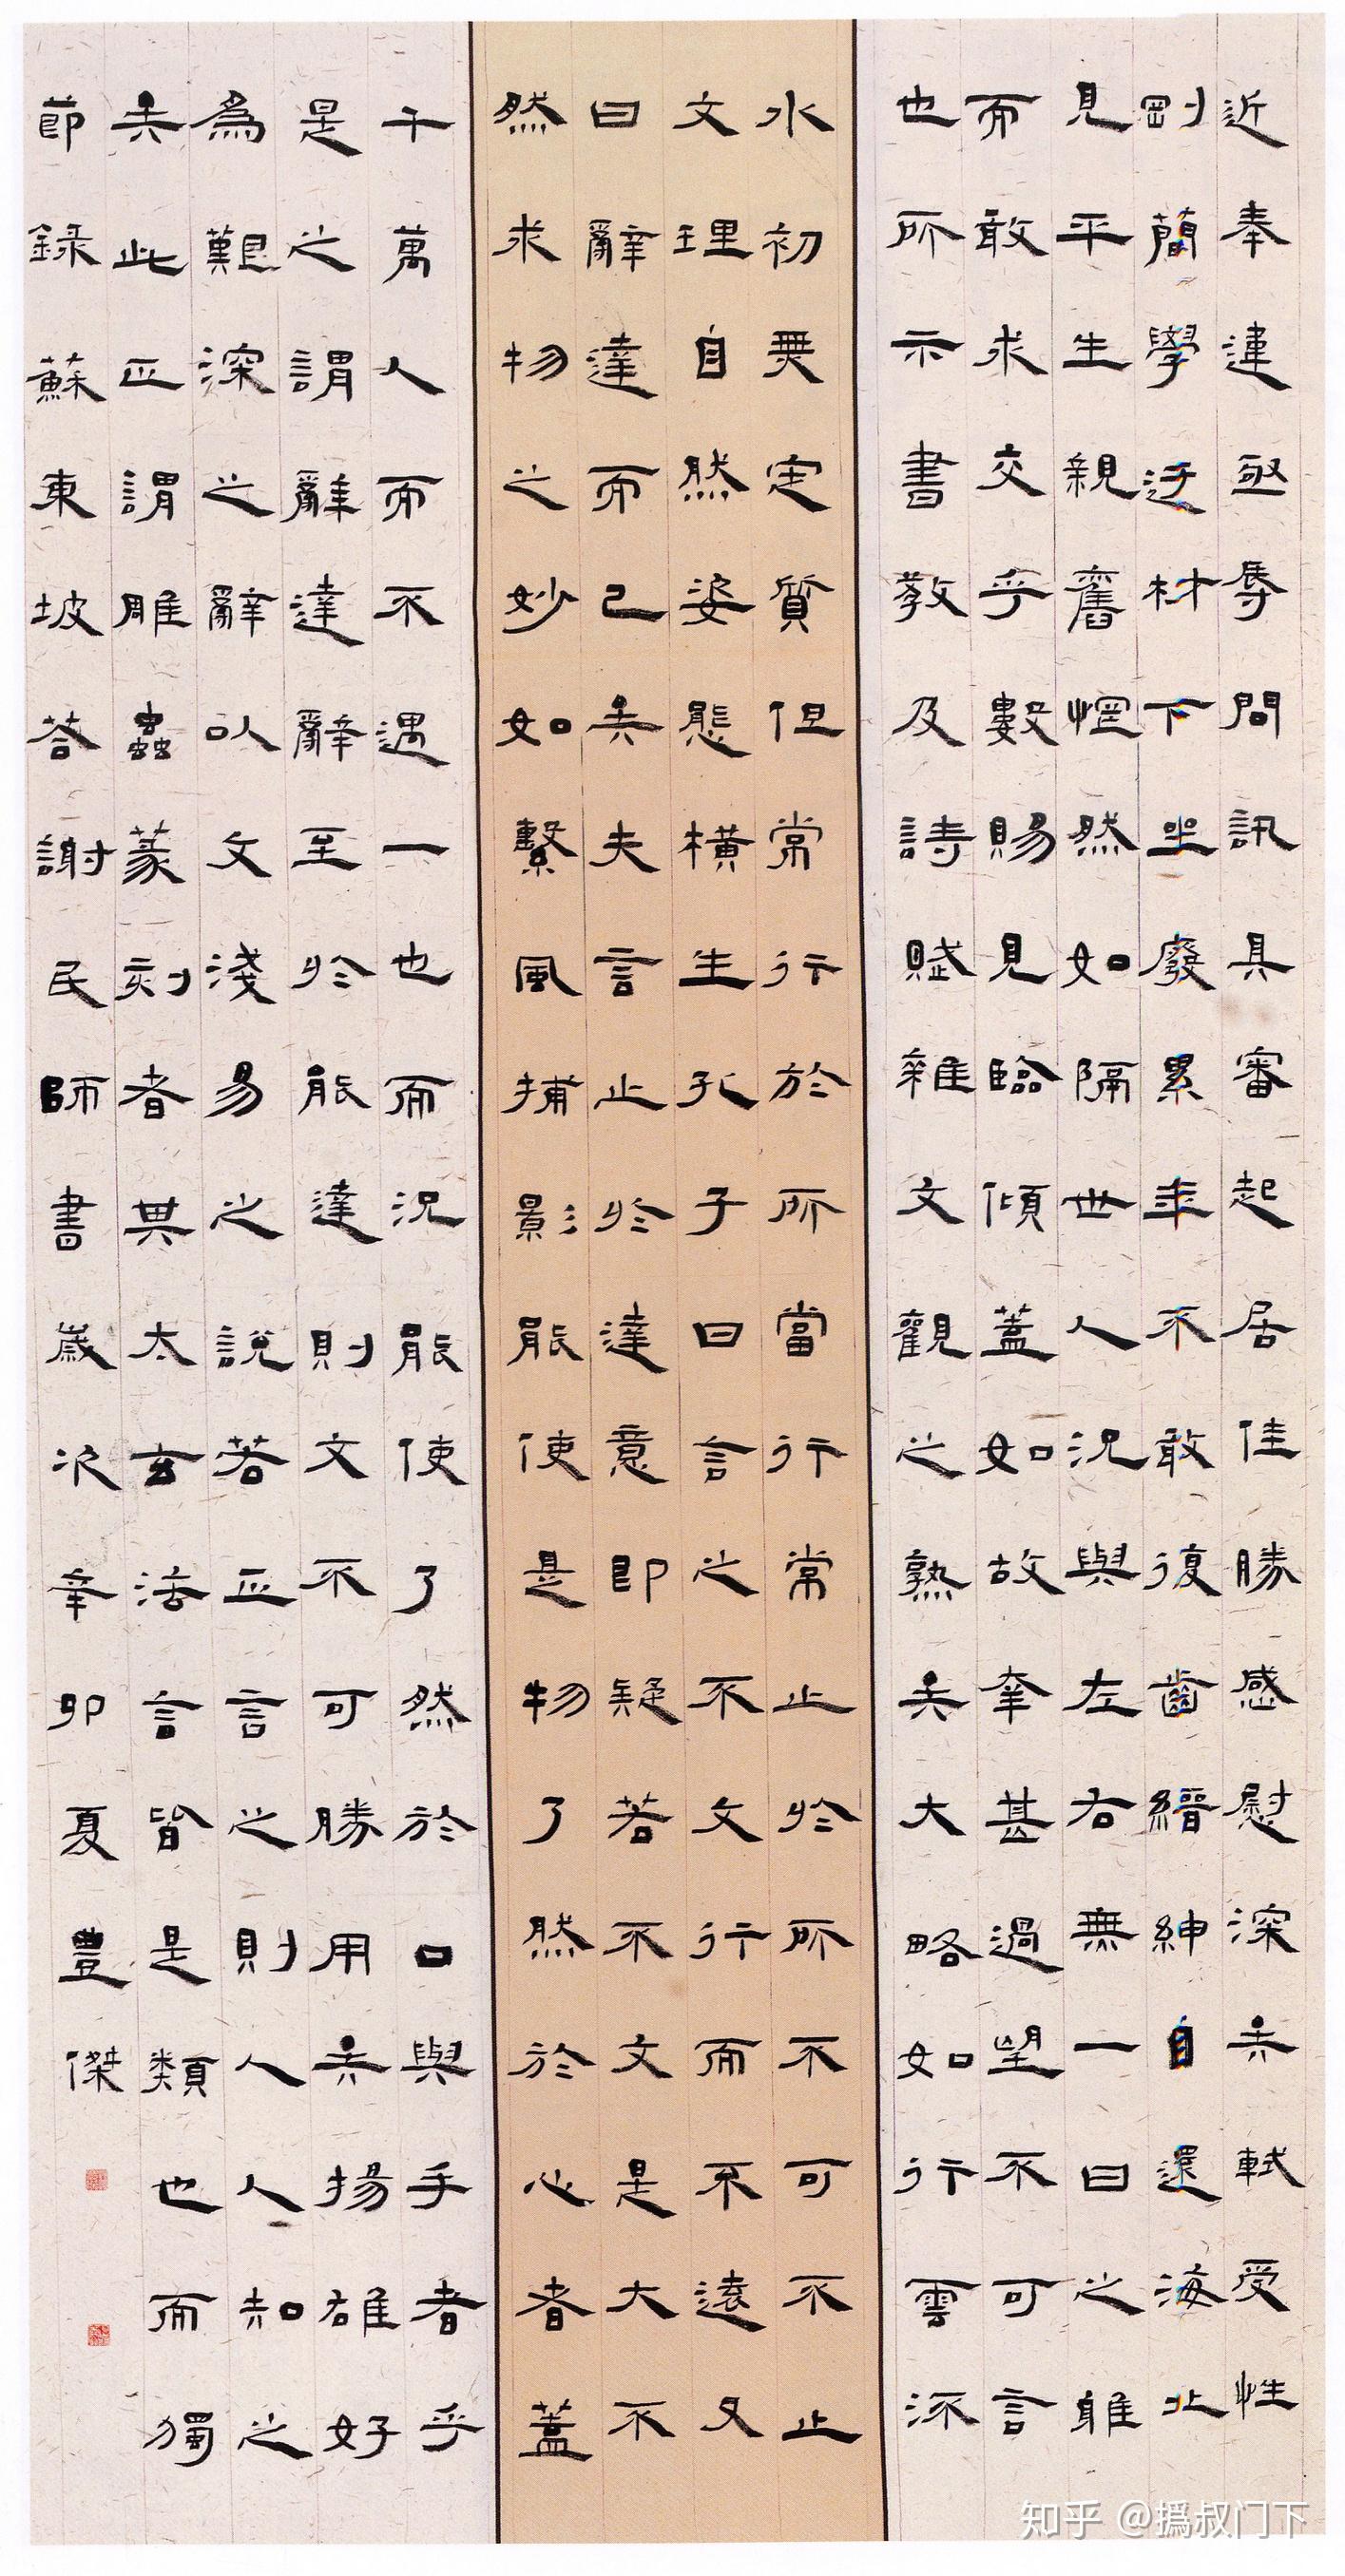 近奉違亟辱問訊具審起居佳勝感慰深矣軾受性
剛簡學迂材下坐廢累年不敢復齒縉紳自還海北
見平生親舊惘然如隔世人況與左右無一日之雅
而敢求交乎數賜見臨傾蓋如故幸甚過望不可言
也所示書教及詩賦雜文觀之熟矣大略如行雲流
水初無定質但常行於所當行常止於所不可不止
文理自然姿態橫生孔子曰言之不文行而不遠又
曰辭達而已矣夫言止於達意即疑若不文是大不
然求物之妙如繫風捕影能使是物了然於心者蓋
千萬人而不遇一也而況能使了然於口與手者乎
是之謂辭達辭至於能達則文不可勝用矣揚雄好
為艱深之辭以文淺易之說若正言之則人人知之
矣此正謂雕蟲篆刻者其太玄法言皆是類也而獨
節錄蘇東坡答謝民師書歲次辛卯夏豐傑
知乎 @撝叔门下